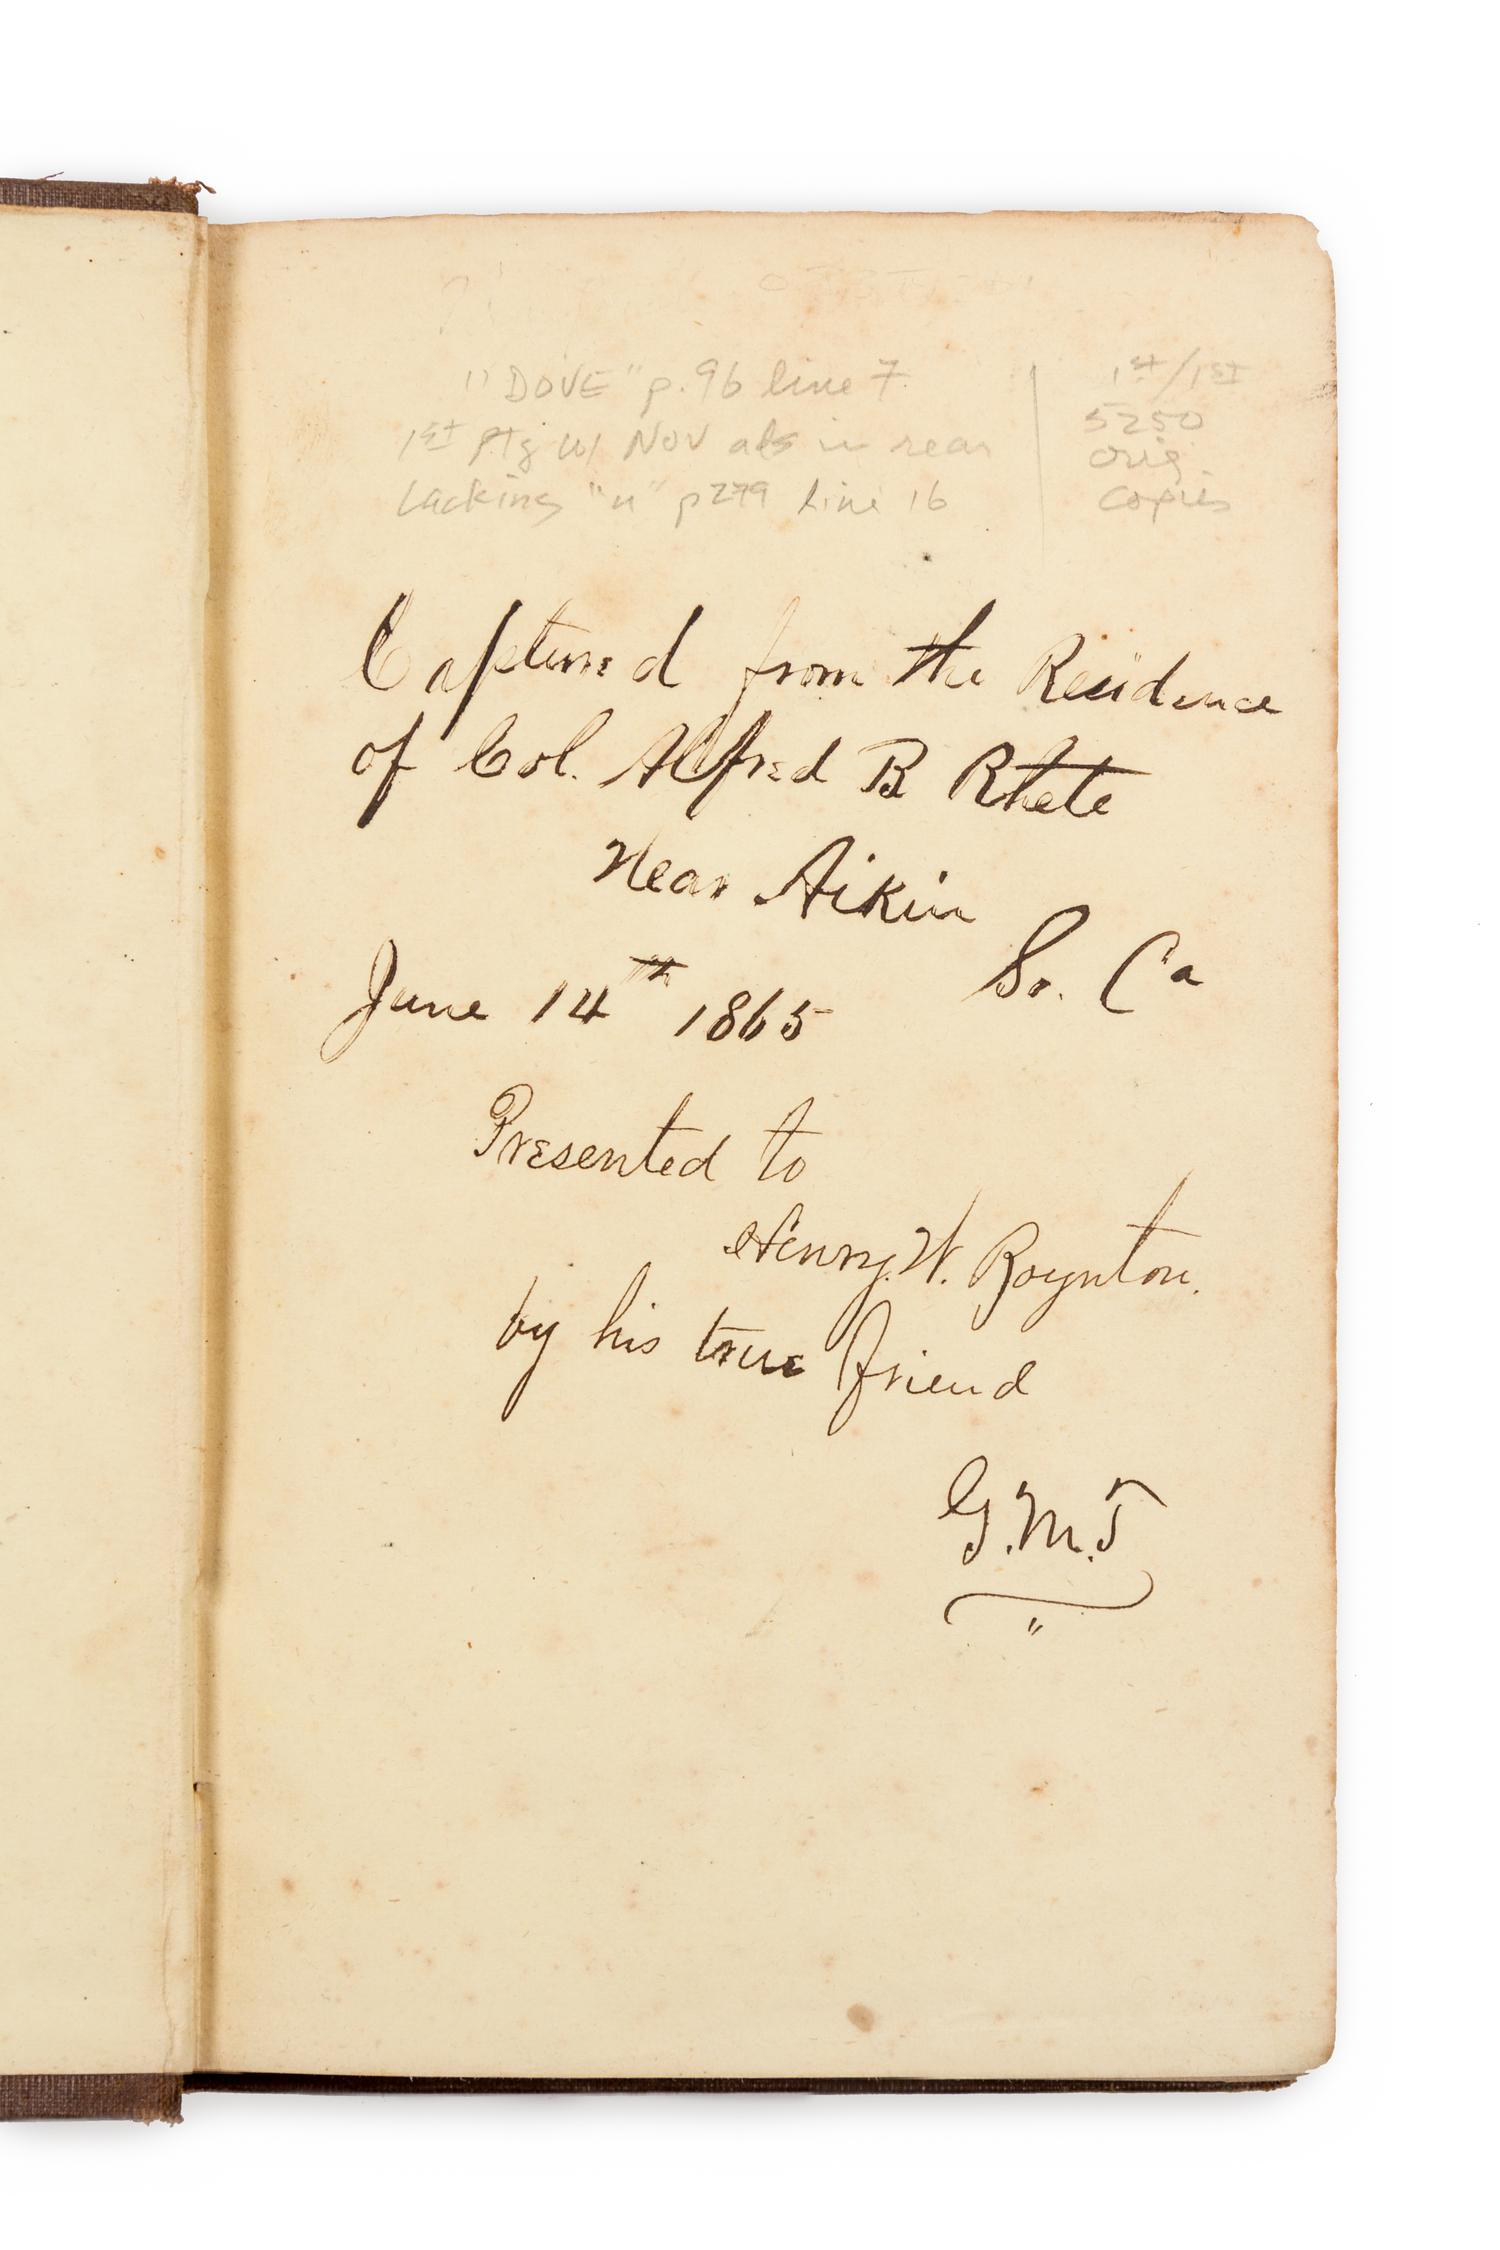 "DOVE" p. 96 line 7
1st ptg w/ Nov ads in rear
Lacking "u" p 279 line 16
1st/1st
5250
orig.
copies
Captured from the Residence
of Col. Alfred B Rhete
Near Aikin
So. Ca
June 14th 1865
Presented to
Henry. W. Boynton.
by his true friend
G. M. J